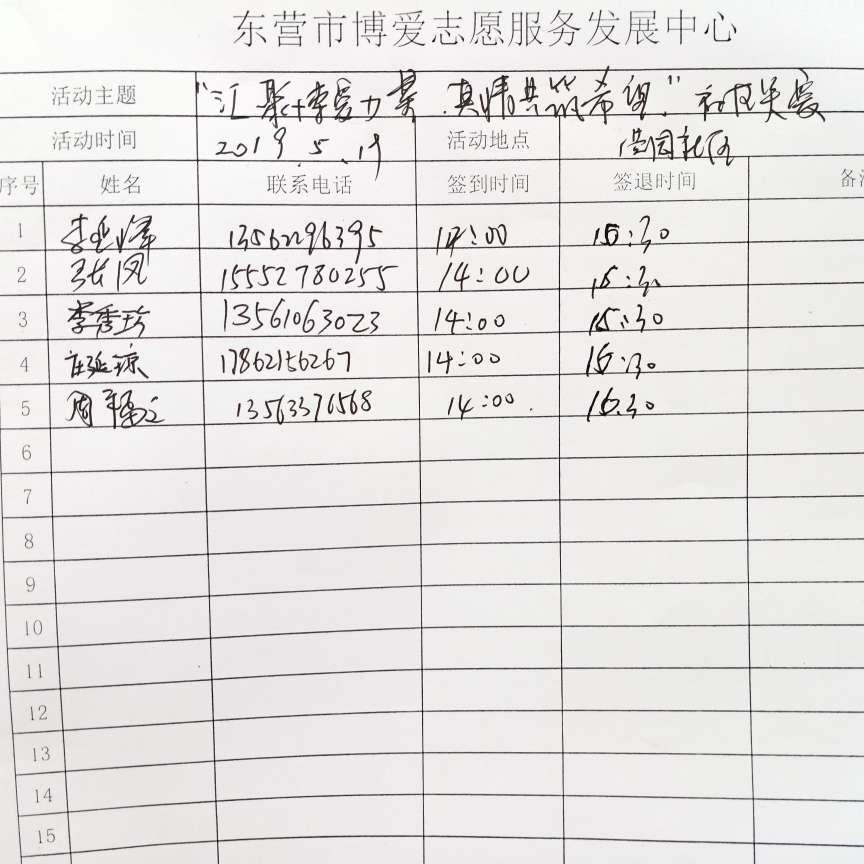 东营市博爱志愿服务发展中心
活动主题 "汇聚博爱力量.真情共筑希望."初校关爱
活动时间 2019.5.19 活动地点 社区
序号 姓名 联系电话 签到时间 签退时间 备
1 李 峰 13562296395 14:00 15:30
2 张凤 15552780255 14:00 15:30
3 李秀珍 13561063023 14:00 15:30
4 庄延琼 17862156267 14:00 15:30
5 周 13563376568 14:00 15.30
6
7
8
9
10
11
12
13
14
15